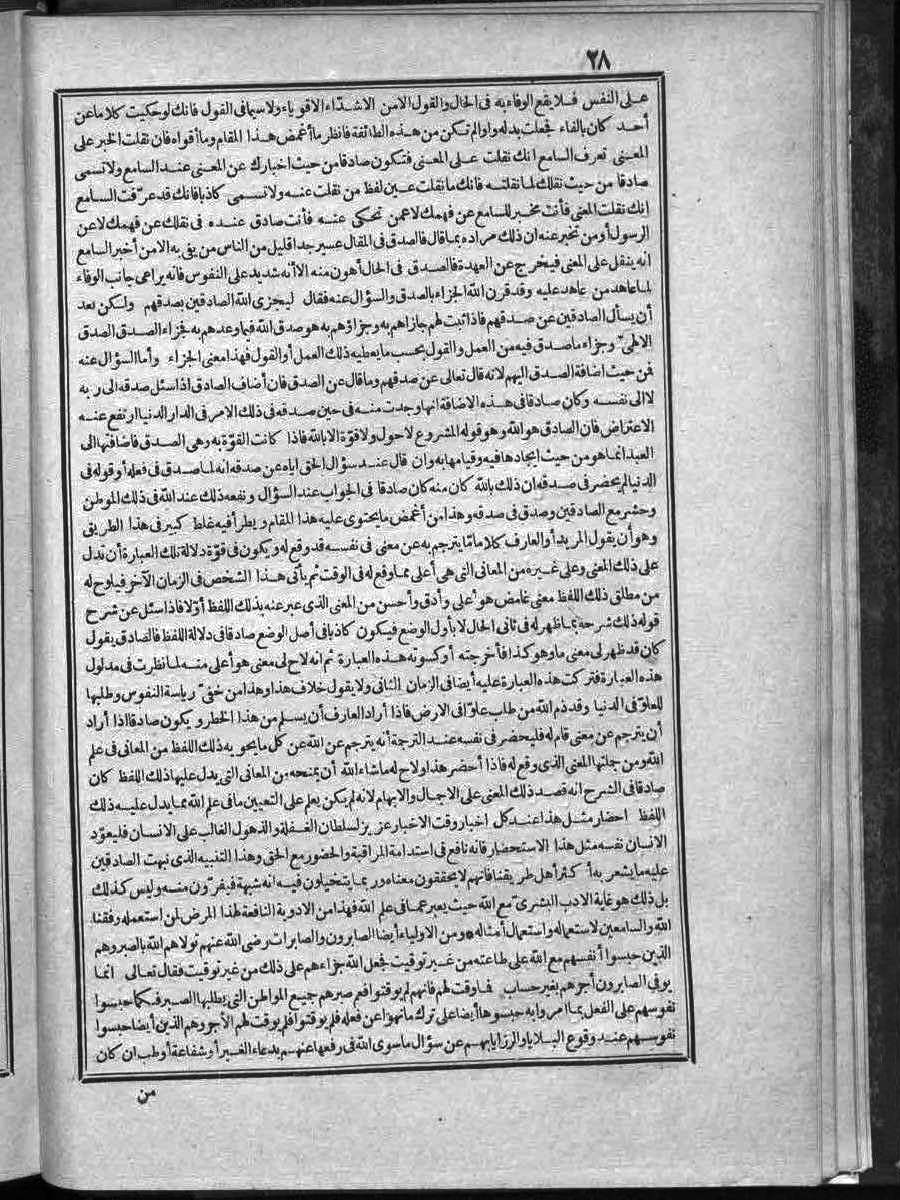 ٢٨
على النفس فلا يقع الوفاء به فى الحال والقول الا من الاشداء الاقوياء ولا سيما فى القول فانك لو حكيت كلاما عن
أحد كان بالفاء فجعلت بدله واوا لم تكن من هذه الطائفة فانظر ما أغمض هذا المقام وما أقواه فان نقلت الخبر على
المعنى تعرف السامع انك نقلت على المعنى فتكون صادقا من حيث اخبارك عن المعنى عند السامع ولا تسمى
صادقا من حيث نقلك لما نقلته فانك ما نقلت عين لفظ من نقلت عنه ولا تسمى كاذبا فانك قد عرّفت السامع
انك نقلت المعنى فأنت مخبر للسامع عن فهمك لا عمن تحكى عنه فأنت صادق عنده فى نقلك عن فهمك لا عن
الرسول أو من تخبر عنه ان ذلك مراده بما قال فالصدق فى المقال عسير جدا قليل من الناس من يفى به الا من أخبر السامع
انه ينقل على المعنى فيخرج عن العهدة فالصدق فى الحال أهون منه الا أنه شديد على النفوس فانه يراعى جانب الوفاء
لما عاهد من عاهد عليه وقد قرن الله الجزاء بالصدق والسؤال عنه فقال ليجزى الله الصادقين بصدقهم ولكن بعد
أن يسأل الصادقين عن صدقهم فاذا ثبت لهم جازاهم به وجزاؤهم به هو صدق الله فيما وعدهم به فجزاء الصدق الصدق
الالهىّ وجزاء ما صدق فيه من العمل والقول بحسب ما يعطيه ذلك العمل أو القول فهذا معنى الجزاء وأما السؤال عنه
فمن حيث اضافة الصدق اليهم لانه قال تعالى عن صدقهم وما قال عن الصدق فان أضاف الصادق اذا سئل صدقه الى ربه
لا الى نفسه وكان صادقا فى هذه الاضافة انها وجدت منه فى حين صدقه فى ذلك الامر فى الدار الدنيا ارتفع عنه
الاعتراض فان الصادق هو الله وهو قوله المشروع لا حول ولا قوة الا بالله فاذا كانت القوّة به وهى الصدق فاضافتها الى
العبد انما هو من حيث ايجادها فيه وقيامها به وان قال عند سؤال الحق اياه عن صدقه انه لما صدق فى فعله أو قوله فى
الدنيا لم يحضر فى صدقه ان ذلك بالله كان منه كان صادقا فى الجواب عند السؤال ونفعه ذلك عند الله فى ذلك الموطن
وحشر مع الصادقين وصدق فى صدقه وهذا من أغمض ما يحتوى عليه هذا المقام ويطرأ فيه غلط كبير فى هذا الطريق
وهو أن يقول المريد أو العارف كلاما مّا يترجم به عن معنى فى نفسه قد وقع له ويكون فى قوّة دلالة تلك العبارة أن تدل
على ذلك المعنى وعلى غيره من المعانى التى هى أعلى مما وقع له فى الوقت ثم يأتى هذا الشخص فى الزمان الآخر فيلوح له
من مطلق ذلك اللفظ معنى غامض هو أعلى وأدق وأحسن من المعنى الذى عبر عنه بذلك اللفظ أوّلا فاذا سئل عن شرح
قوله ذلك شرحه بما ظهر له فى ثانى الحال لا بأول الوضع فيكون كاذبا فى أصل الوضع صادقا فى دلالة اللفظ فالصادق يقول
كان قد ظهر لى معنى ما وهو كذا فأخرجته أو كسوته هذه العبارة ثم انه لاح لى معنى هو أعلى منه لما نظرت فى مدلول
هذه العبارة فتركت هذه العبارة عليه أيضا فى الزمان الثانى ولا يقول خلاف هذا وهذا من خفىّ رياسة النفوس وطلبها
للعلوّ فى الدنيا وقد ذم الله من طلب علوّا فى الارض فاذا أراد العارف أن يسلم من هذا الخطر ويكون صادقا اذا أراد
أن يترجم عن معنى قام له فليحضر فى نفسه عند الترجمة أنه يترجم عن الله عن كل ما يحويه ذلك اللفظ من المعانى فى علم
الله ومن جلتها المعنى الذى وقع له فاذا أحضر هذا ولاح له ما شاء الله أن يمنحه من المعانى التى يدل عليها ذلك اللفظ كان
صادقا فى الشرح انه قصد ذلك المعنى على الاجمال والابهام لانه لم يكن يعلم على التعيين ما فى علم الله مما يدل عليه ذلك
اللفظ احضار مثل هذا عند كل اخبار وقت الاخبار عزيز لسلطان الغفلة والذهول الغالب على الانسان فليعوّد
الانسان نفسه مثل هذا الاستحضار فانه نافع فى استدامة المراقبة والحضور مع الحق وهذا التنبيه الذى نبهت الصادقين
عليه ما يشعر به أكثر أهل طريقنا فانهم لا يحققون معناه وربما يتخيلون فيه انه شبهة فيفرّون منه وليس كذلك
بل ذلك هو غاية الادب البشرىّ مع الله حيث يعبر عما فى علم الله فهذا من الادوية النافعة لهذا المرض لمن استعمله وفقنا
الله والسامعين لاستعماله واستعمال أمثاله * ومن الاولياء أيضا الصابرون والصابرات رضى الله عنهم تولاهم الله بالصبر وهم
الذين حبسوا أنفسهم مع الله على طاعته من غير توقيت فجعل الله جزاءهم على ذلك من غير توقيت فقال تعالى انما
يوفى الصابرون أجرهم بغير حساب فما وقت لهم فانهم لم يوقتوا فعم صبرهم جميع المواطن التى يطلبها الصبر فكما حبسوا
نفوسهم على الفعل بما امروا به حبسوها أيضا على ترك ما نهوا عن فعله فلم يوقتوا فلم يوقت لهم الاجر وهم الذين أيضا حبسوا
نفوسهم عند وقوع البلايا والرزايا بهم عن سؤال ما سوى الله فى رفعها عنهم بدعاء الغير أو شفاعة أو طب ان كان
من